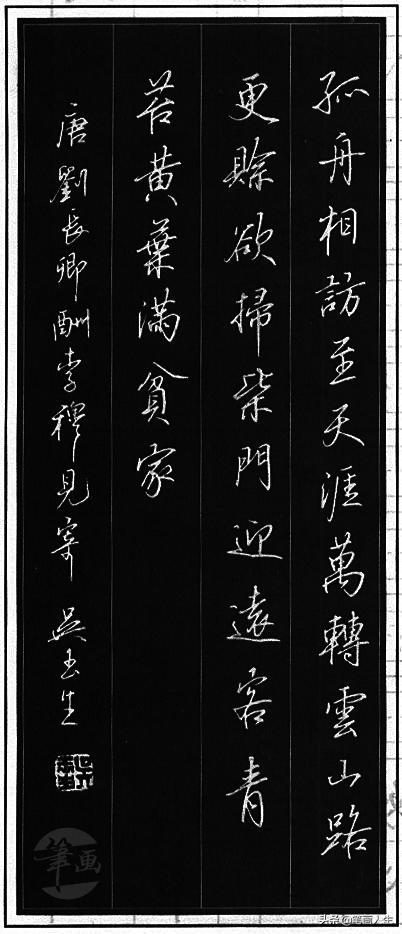 孤舟相訪至天涯萬轉雲山路
更賖欲掃柴門迎遠客青
苔黃葉滿貧家
唐劉長卿酬李穆見寄 吳玉生
筆画
头条@笔画人生